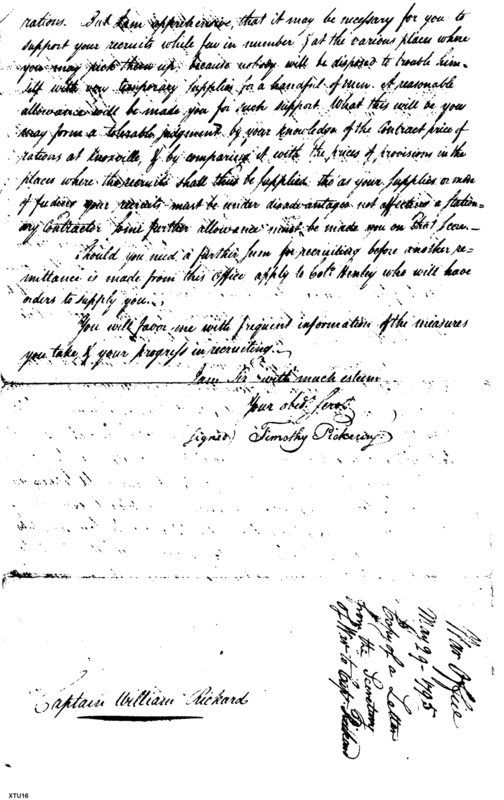 rations. But I am apprehensive, that it may be necessary for you to
support your recruits while few in number & at the various places where
you may pick them up, because nobody will be disposed to trouble him-
self with very temporary supplies for a handful of men. A reasonable
allowance will be made you for such support. What this will be you
may form a tolerable judgment, by your knowledge of the contract price of
rations at Knoxville, & by comparing it with the prices of provisions in the
places where the recruits shall thus be supplied, tho' as your supplies or mode
of feeding your recruits must be under disadvantages not affecting a station-
ary Contractor some further allowance must be made you on that Score.
Should you need a further sum for recruiting before another re-
mittance is made from this office apply to Colo. Henley who will have
orders to supply you.
You will favor me with frequent information of the measures
you take & your progress in recruiting.
I am Sir with much esteem
Your obedt. Servt.
signed) Timothy Pickering
War Office
May 29. 1795
Copy of a Letter
from the Secretary
of War to Capt. Rickard
Captain William Rickard
XTU16